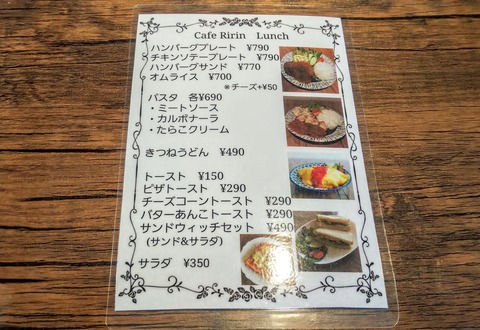 Cafe Ririn Lunch
ハンバーグプレート ¥790
チキンソテープレート ¥790
ハンバーグサンド ¥770
オムライス ¥700
※チーズ+¥50
パスタ 各¥690
・ミートソース
・カルボナーラ
・たらこクリーム
きつねうどん ¥490
トースト ¥150
ピザトースト ¥290
チーズコーントースト ¥290
バターあんこトースト ¥290
サンドウィッチセット ¥490
(サンド&サラダ)
サラダ ¥350